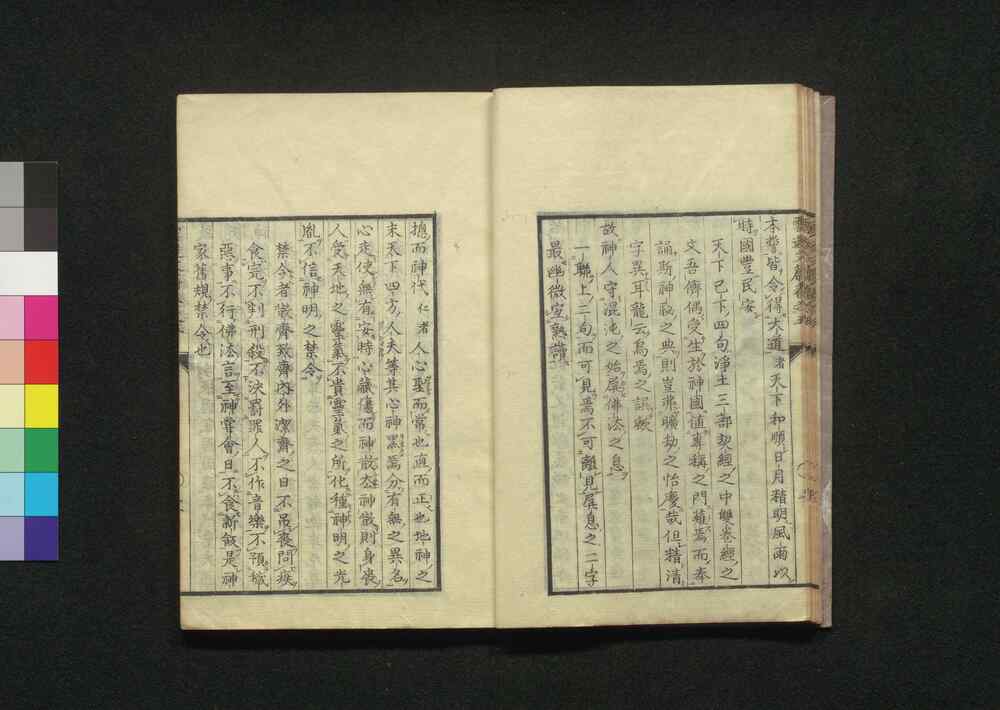 本誓皆令得大道者天下和順日月精明風雨以
時國豐民安
天下已下四句淨土三部契經之中雙卷經之
文吾儕偶受生於神國値專稱之門葉焉而奉
誦斯神敎之典則豈非曠劫之怡慶哉但精清
字異耳龍云烏焉之誤歟
故神人守混沌之始屏佛法之息
一聯上之二句而可見焉不可離見屏息之二字
最幽微宜熟讀
摠而神代仁者人心聖而常也直而正也地神之
末天下四方人夫等其心神黑焉分有無之異名
心走使無有安時心藏傷而神散去神散則身喪
人受天地之靈氣不貴靈氣之所化種神明之光
胤不信神明之禁令
禁令者散齊致齊內外潔齊之日不吊喪問疾
食完不判刑殺不決罰罪人不作音樂不預穢
惡事不行佛法言至神嘗會日不食新飯是神
家舊規禁令也